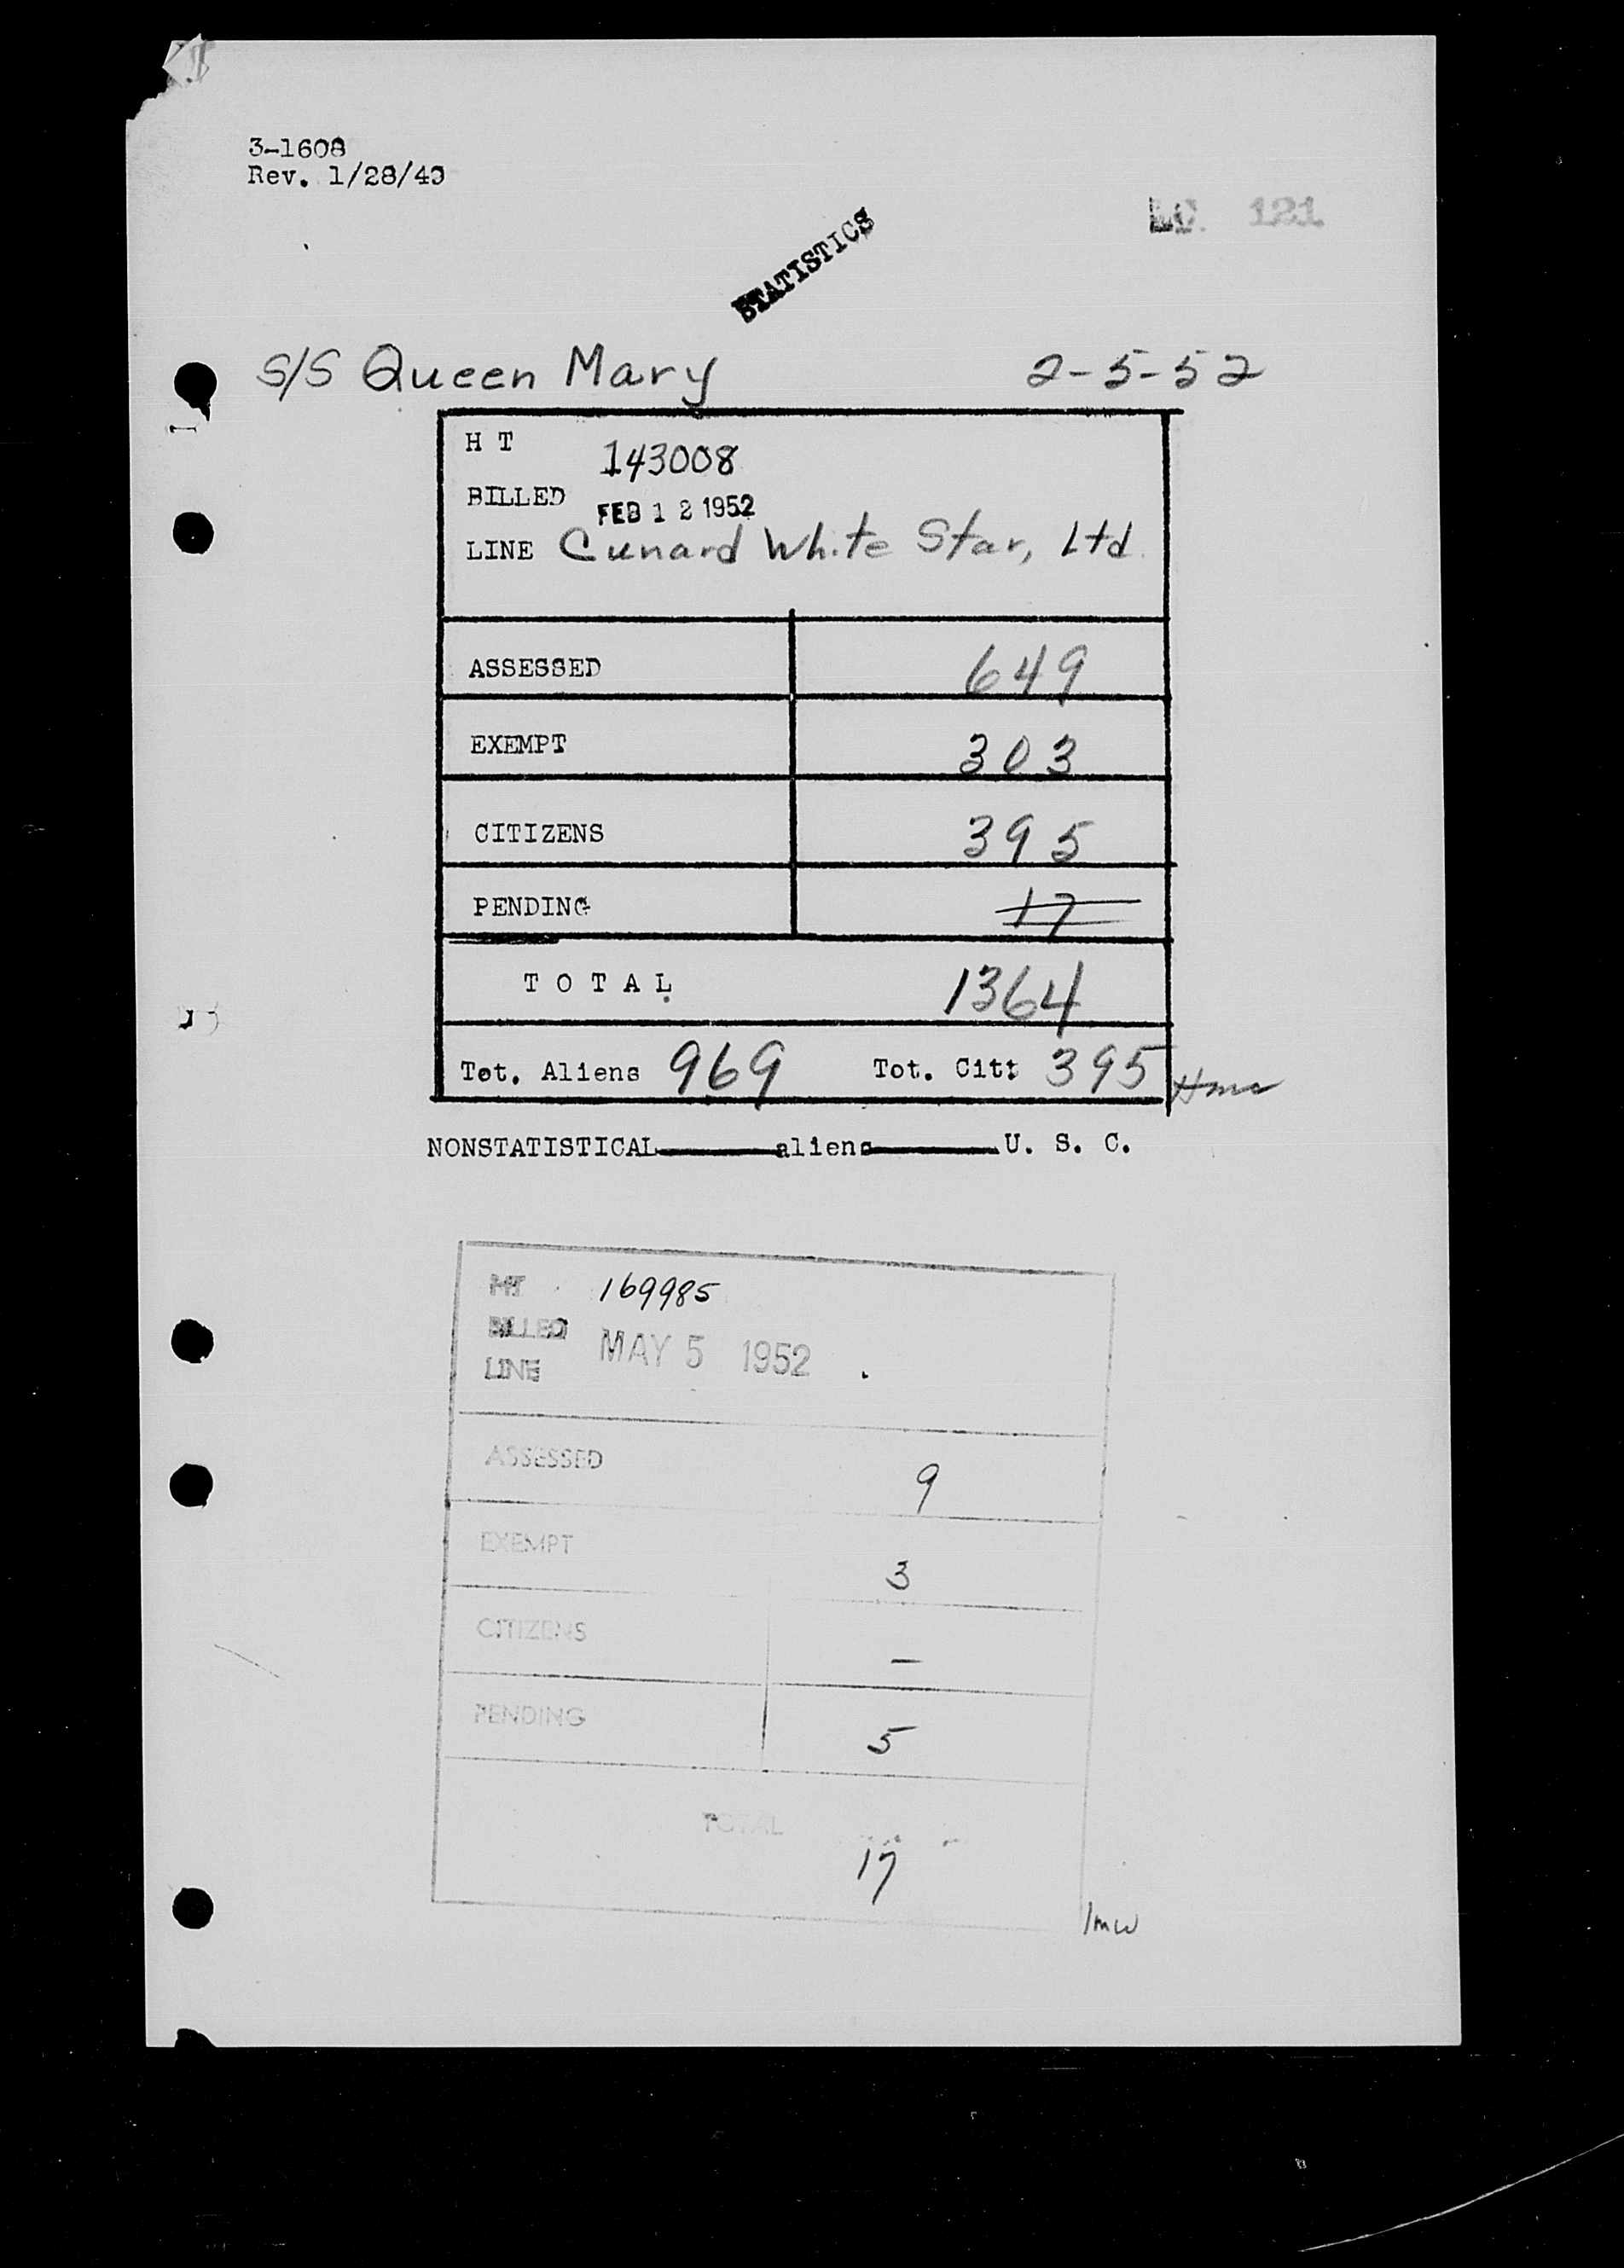 3-1608
Rev. 1/28/49
121
STATISTICS
S/S Queen Mary 2-5-52
H T 143008
BILLED FEB 12 1952
LINE Cunard White Star, Ltd.
ASSESSED 649
EXEMPT 303
CITIZENS 395
PENDING 17
TOTAL 1364
Tot. Aliens 969 Tot. Citz 395
NONSTATISTICAL aliens U. S. C.
HT 169985
BILLED MAY 5 1952
LINE
ASSESSED 9
EXEMPT 3
CITIZENS –
PENDING 5
TOTAL
17
lmw